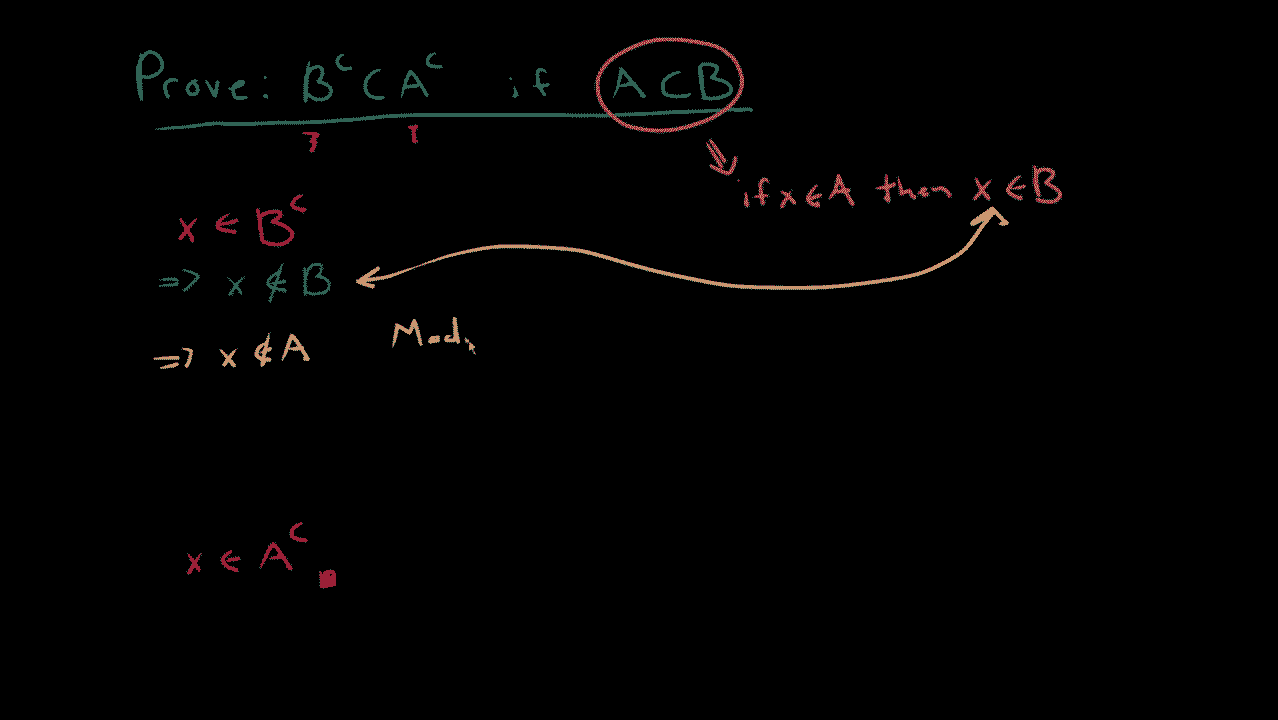 Prove: Bᶜ ⊂ Aᶜ if A ⊂ B
if x ∈ A then x ∈ B
x ∈ Bᶜ
⇒ x ∉ B
⇒ x ∉ A Mod.
x ∈ Aᶜ